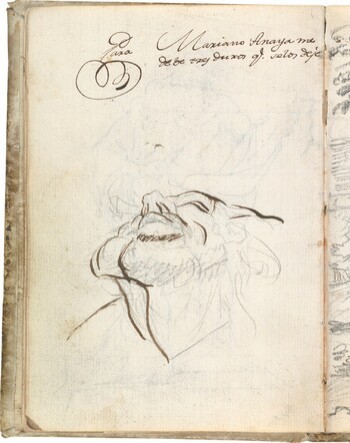 Para Mariano Anaya me
debe tres duros q.e se los deje